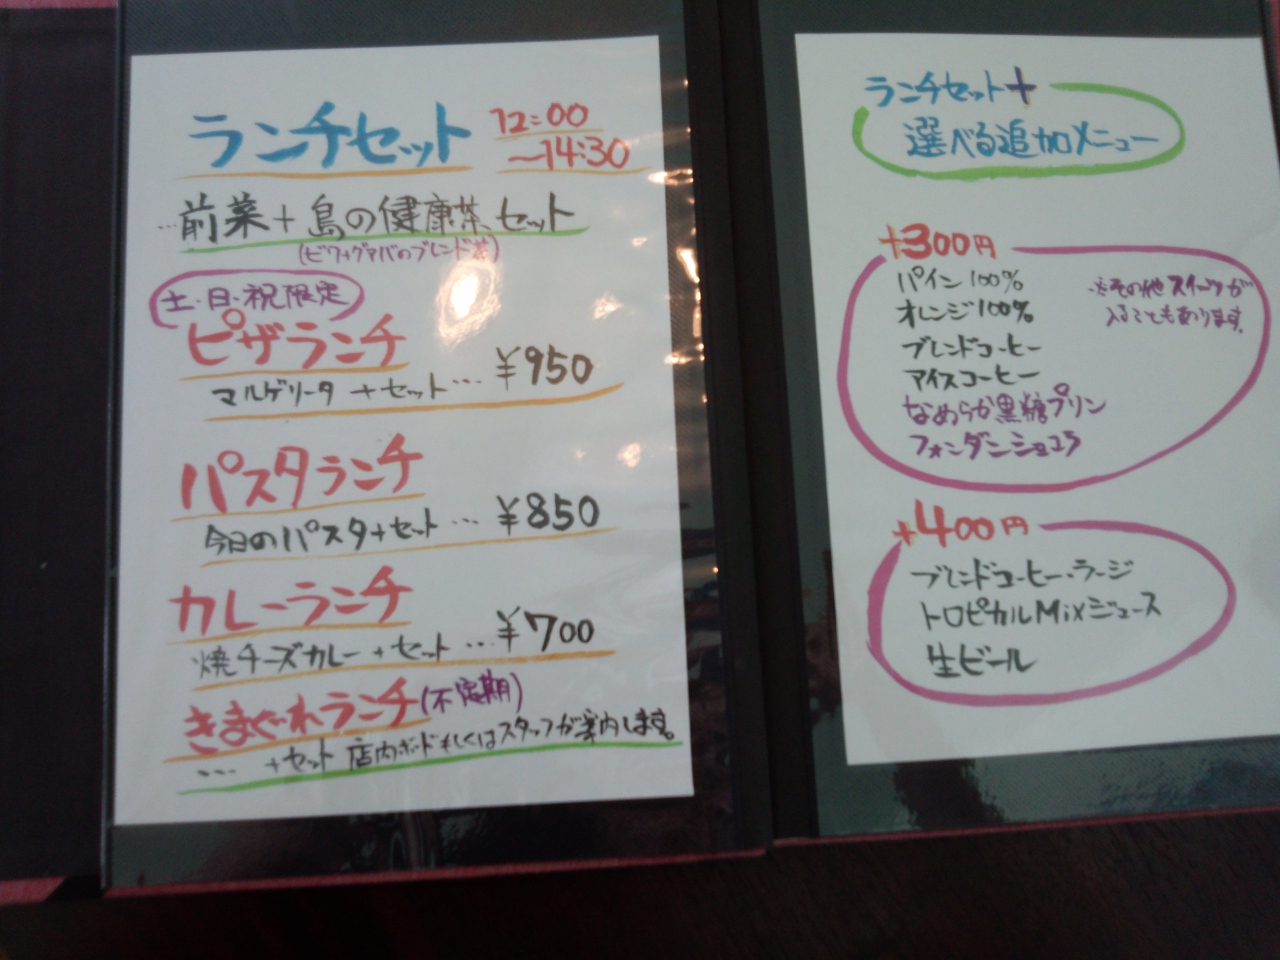 ランチセット 12:00
〜14:30
…前菜+島の健康茶セット
(ビワ+グァバのブレンド茶)
土・日・祝限定
ピザランチ
マルゲリータ+セット…¥950
パスタランチ
今日のパスタ+セット…¥850
カレーランチ
焼チーズカレー+セット…¥700
きまぐれランチ(不定期)
…. +セット 店内ボードもしくはスタッフが案内します。
ランチセット+
選べる追加メニュー
+300円
パイン100%
オレンジ100%
ブレンドコーヒー
アイスコーヒー
なめらか黒糖プリン
フォンダンショコラ
※その他スイーツが
入ることもあります。
+400円
ブレンドコーヒー・ラージ
トロピカルMixジュース
生ビール